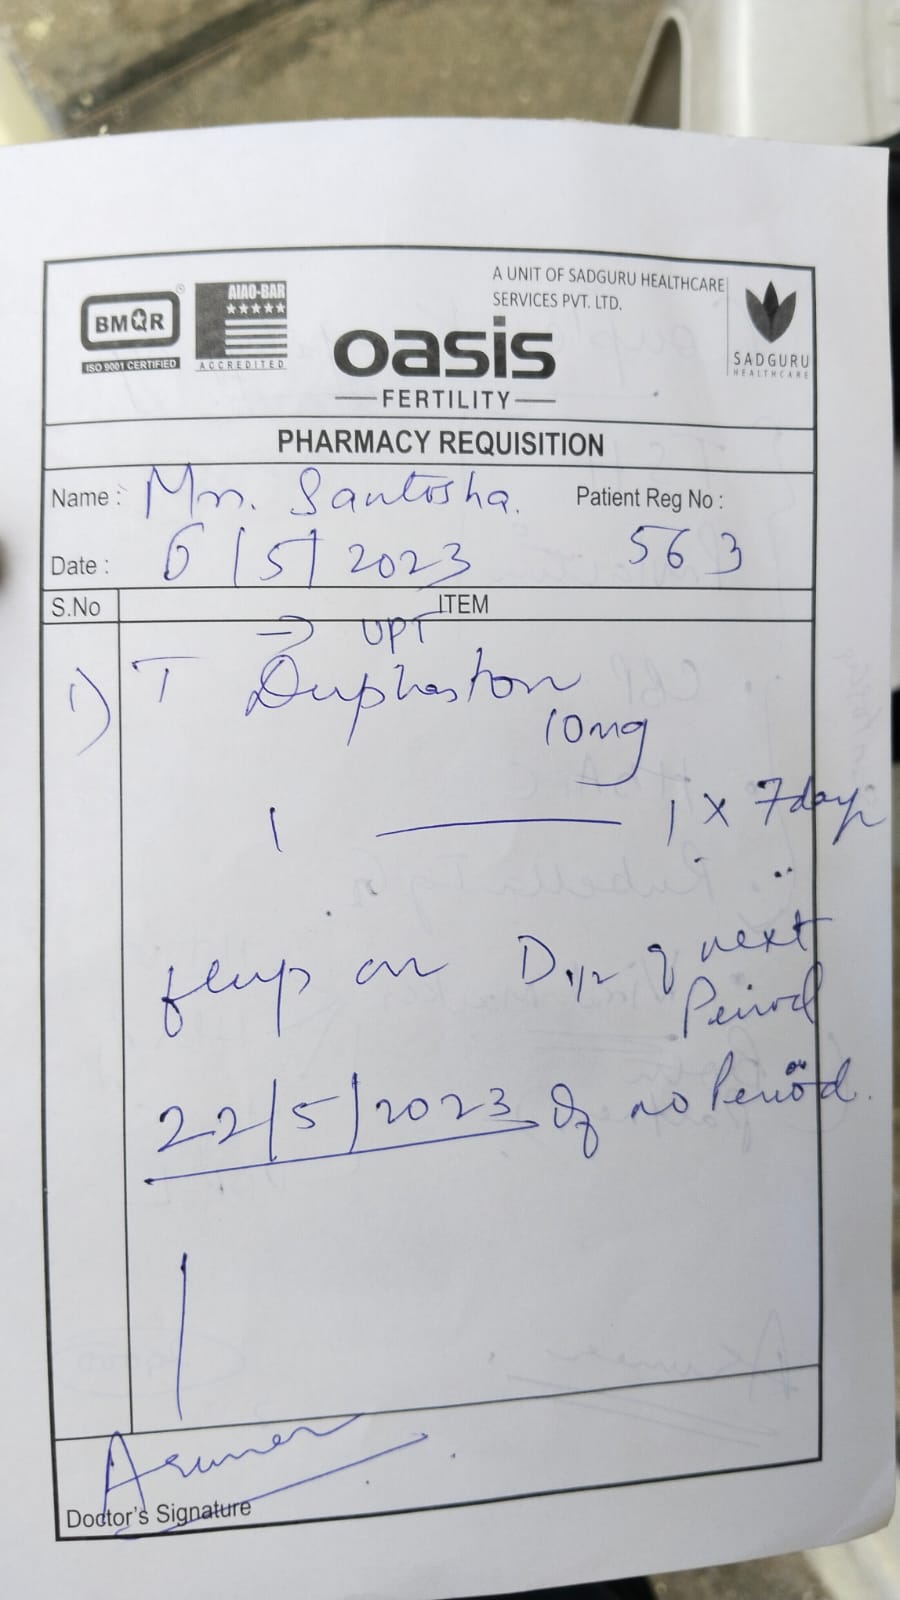 BMQR
ISO 9001 CERTIFIED
AIAO-BAR
ACCREDITED
A UNIT OF SADGURU HEALTHCARE
SERVICES PVT. LTD.
oasis
FERTILITY
SADGURU
HEALTHCARE
PHARMACY REQUISITION
Name : Mrs. Santosha. Patient Reg No :
Date : 6/5/2023 563
S.No ITEM
→ UPT
1) T Duphaston
10mg
1 — 1 x 7days
on D1/2 of next
Period
or
22/5/2023 If no Period.
Doctor's Signature